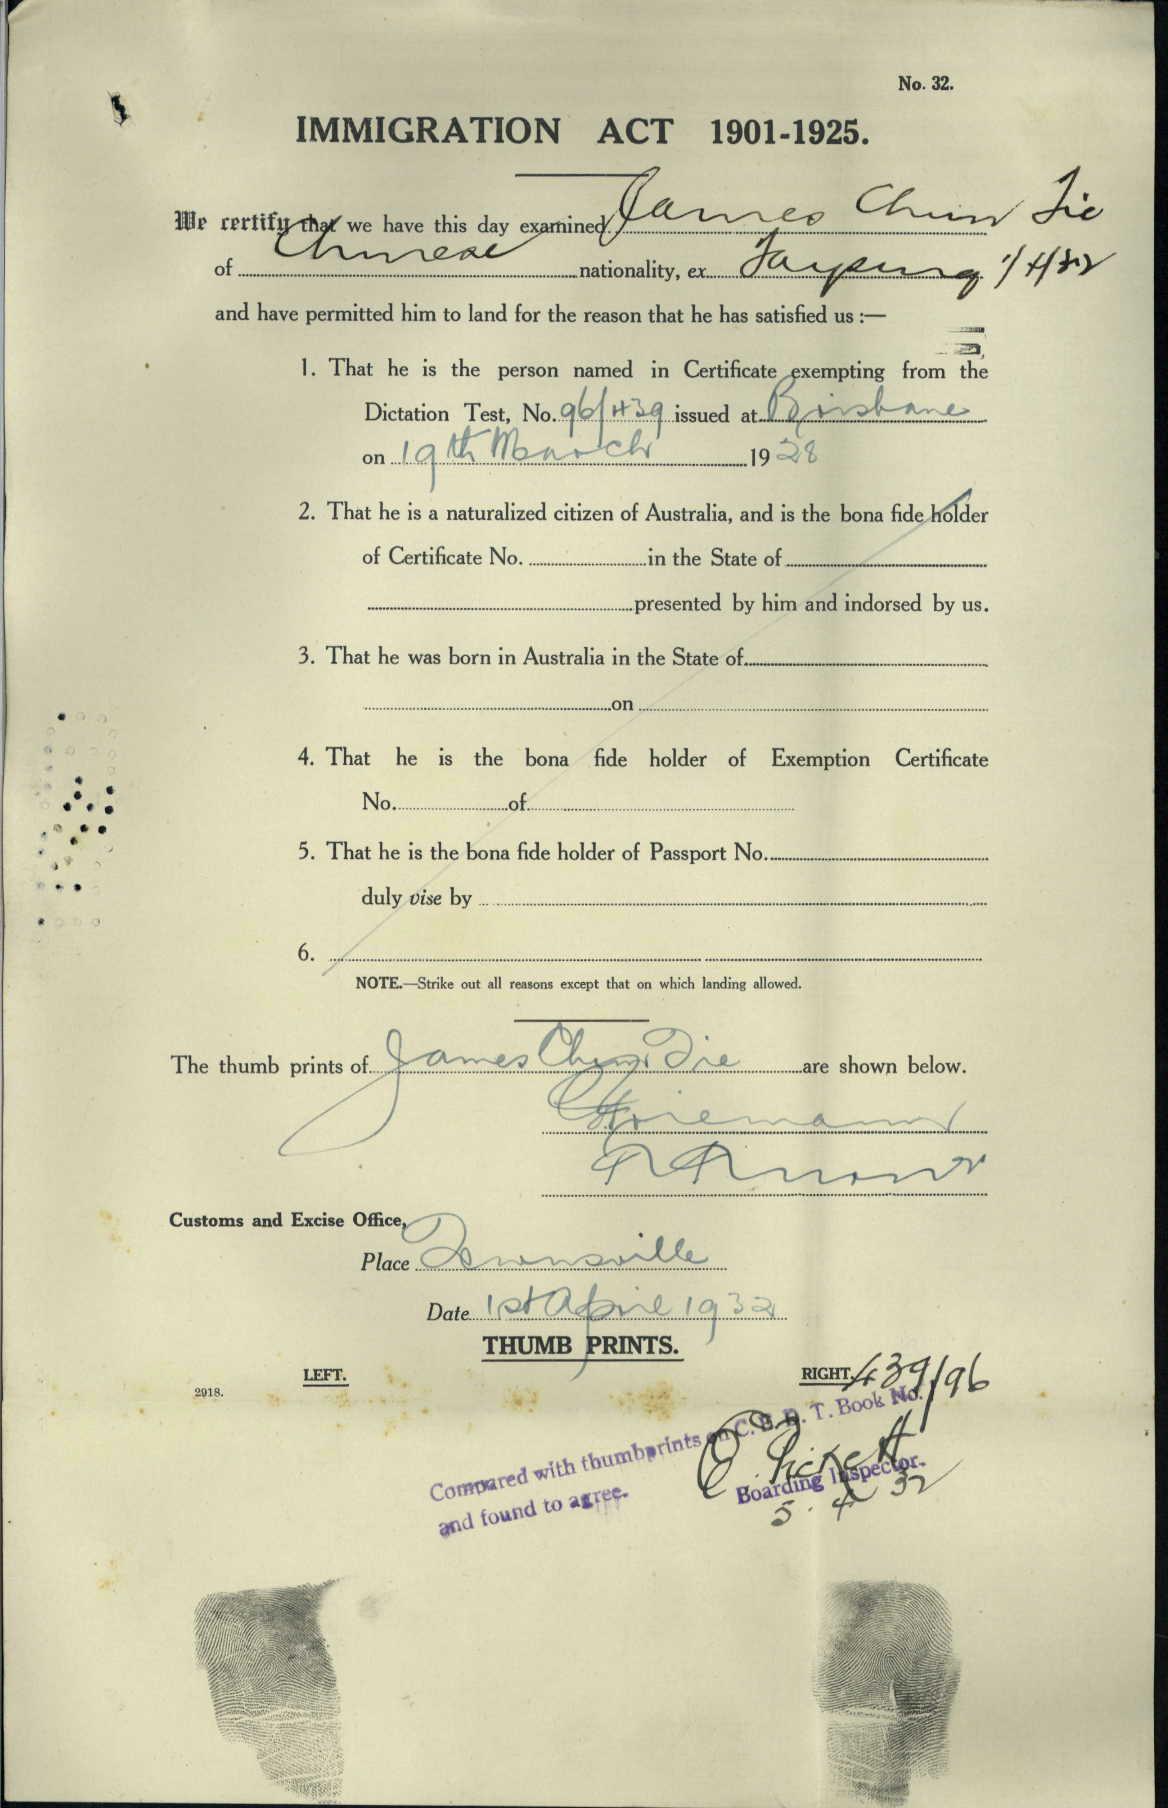 No. 32.
IMMIGRATION ACT 1901-1925.
We certify that we have this day examined James Chun Tie
of Chinese nationality, ex Taiping 1/4/32
and have permitted him to land for the reason that he has satisfied us :—
1. That he is the person named in Certificate exempting from the
Dictation Test, No. 96/439 issued at Brisbane
on 19th March 1928
2. That he is a naturalized citizen of Australia, and is the bona fide holder
of Certificate No. in the State of
presented by him and indorsed by us.
3. That he was born in Australia in the State of
on
4. That he is the bona fide holder of Exemption Certificate
No. of
5. That he is the bona fide holder of Passport No.
duly vise by
6.
NOTE.—Strike out all reasons except that on which landing allowed.
The thumb prints of James Chun Tie are shown below.
Customs and Excise Office,
Place Townsville
Date 1st April 1932
THUMB PRINTS.
LEFT. RIGHT. 439/96
2918.
Compared with thumbprints on C.E.D.T. Book No.
and found to agree.
Pickett
Boarding Inspector.
5.4.32